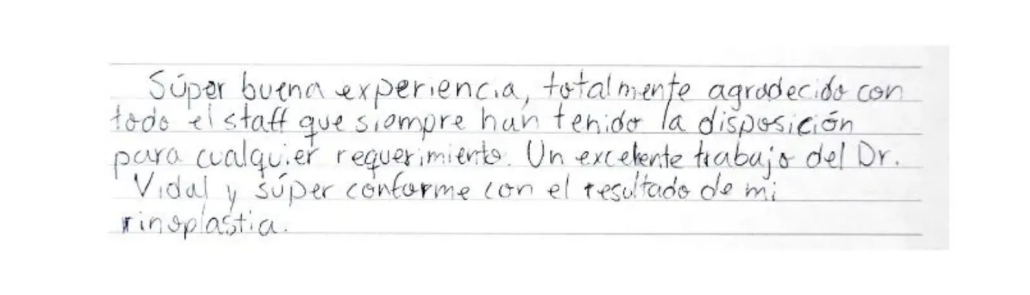 Súper buena experiencia, totalmente agradecido con
todo el staff que siempre han tenido la disposición
para cualquier requerimiento. Un excelente trabajo del Dr.
Vidal y súper conforme con el resultado de mi
rinoplastia.